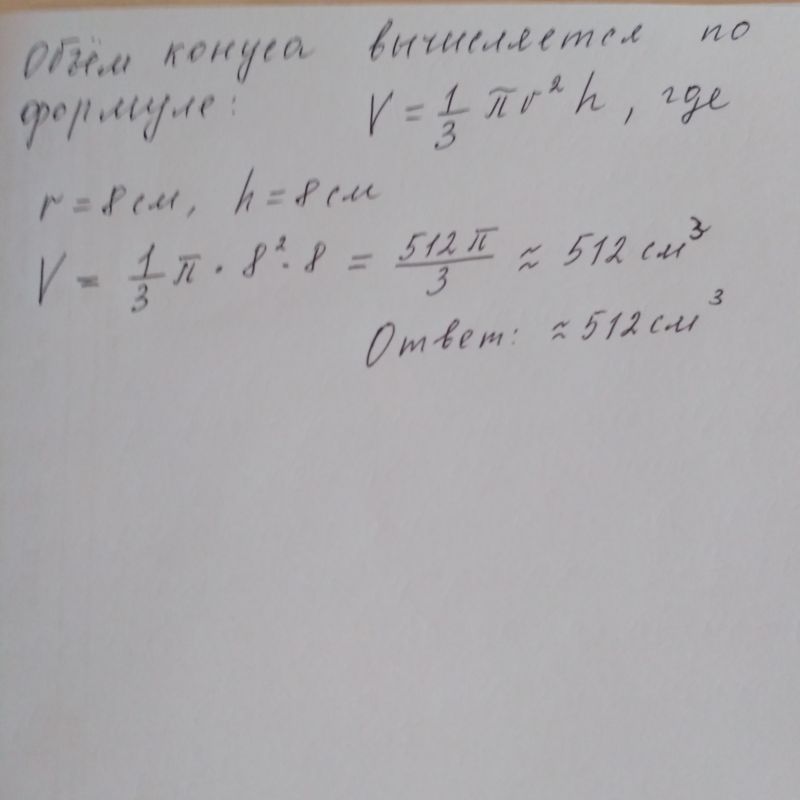 Объём конуса вычисляется по
формуле: V = 1/3 πr² h , где
r = 8 см, h = 8 см
V = 1/3 π · 8² · 8 = 512 π/3 ≈ 512 см³
Ответ: ≈ 512 см³